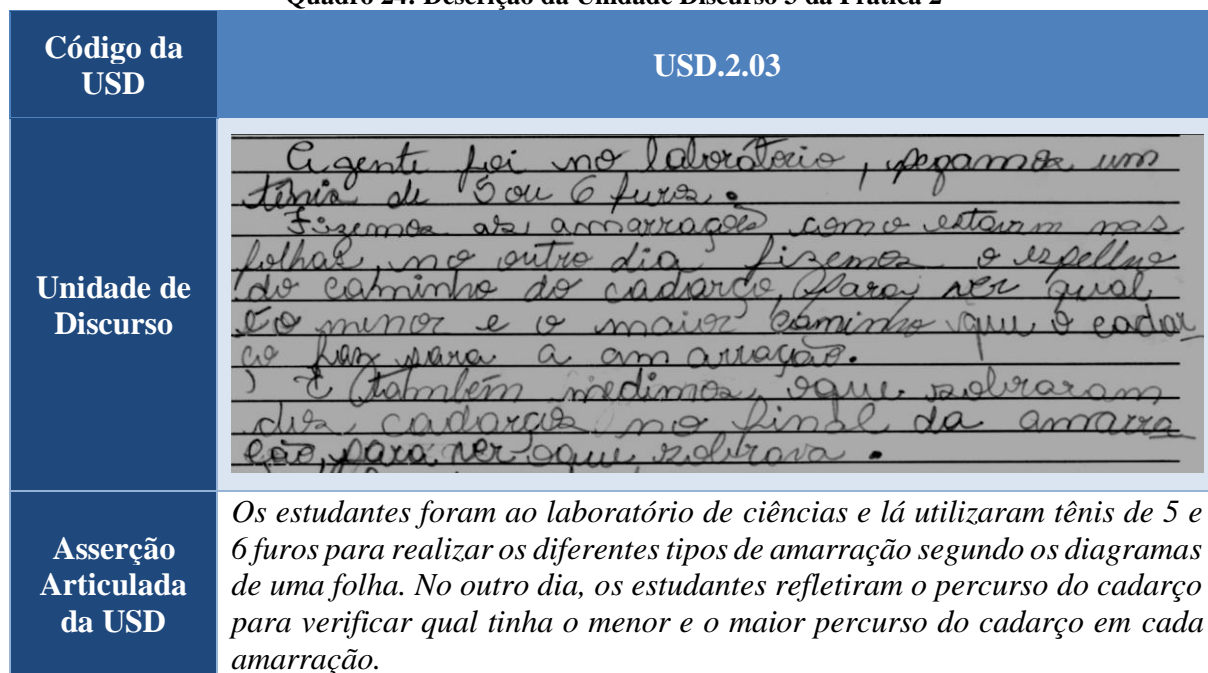 Quadro 24: Descrição da Unidade Discurso 3 da Prática 2
Código da USD
USD.2.03
Unidade de Discurso
A gente foi no laboratório, pegamos um
tênis de 5 ou 6 furos.
Fizemos as amarrações como estavam nas
folhas, no outro dia fizemos o espellho
do caminho do cadarço, para ver qual
é o menor e o maior caminho que o cadar
ço faz para a amarração.
E também medimos oque sobraram
dos cadarços no final da amarra
ção, para ver oque sobrava.
Asserção Articulada da USD
Os estudantes foram ao laboratório de ciências e lá utilizaram tênis de 5 e
6 furos para realizar os diferentes tipos de amarração segundo os diagramas
de uma folha. No outro dia, os estudantes refletiram o percurso do cadarço
para verificar qual tinha o menor e o maior percurso do cadarço em cada
amarração.